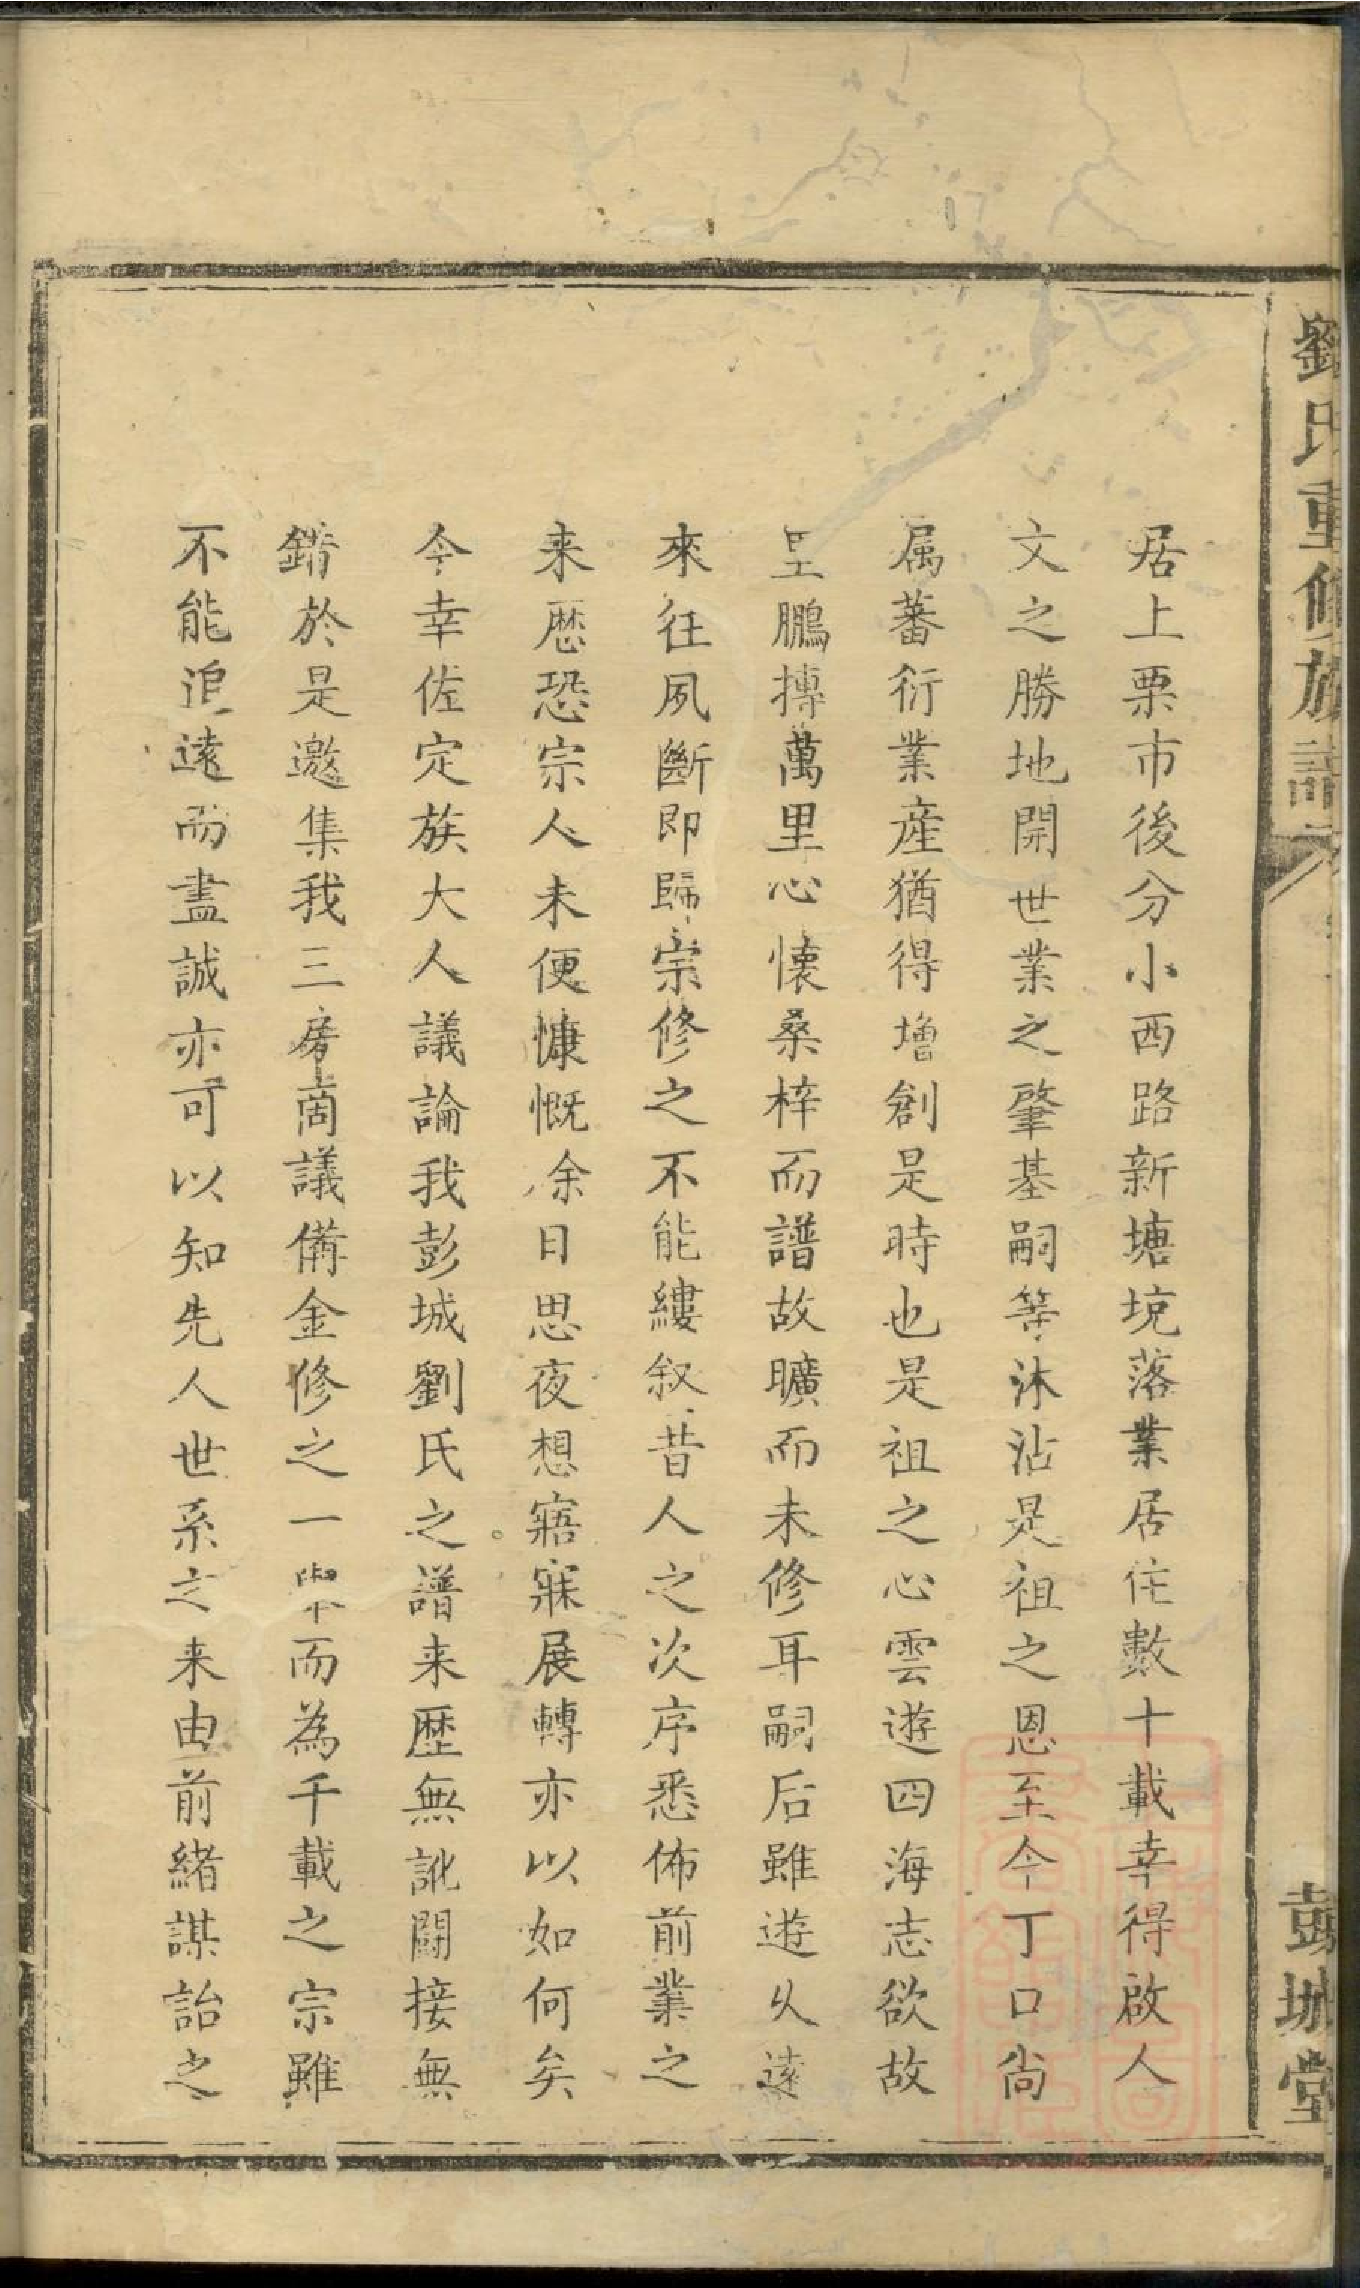 劉氏重修族譜
彭城堂
居上栗市後分小西路新塘埦落業居住數十載幸得啟人
文之勝地開世業之肇基嗣等沐沾是祖之恩至今丁口尙
属蕃衍業産猶得增創是時也是祖之心雲遊四海志欲故
里鵬摶萬里心懷桑梓而譜故曠而未修耳嗣后雖遊乆遠
來往夙斷即歸宗修之不能縷叙昔人之次序悉佈前業之
来歴恐宗人未便慷慨余日思夜想寤寐展轉亦以如何矣
今幸佐定族大人議論我彭城劉氏之譜来歴無訛闘接無
錯於是邀集我三房啇議備金修之一而為千載之宗雖
不能追遠而盡誠亦可以知先人世系之来由前緒謀詒之